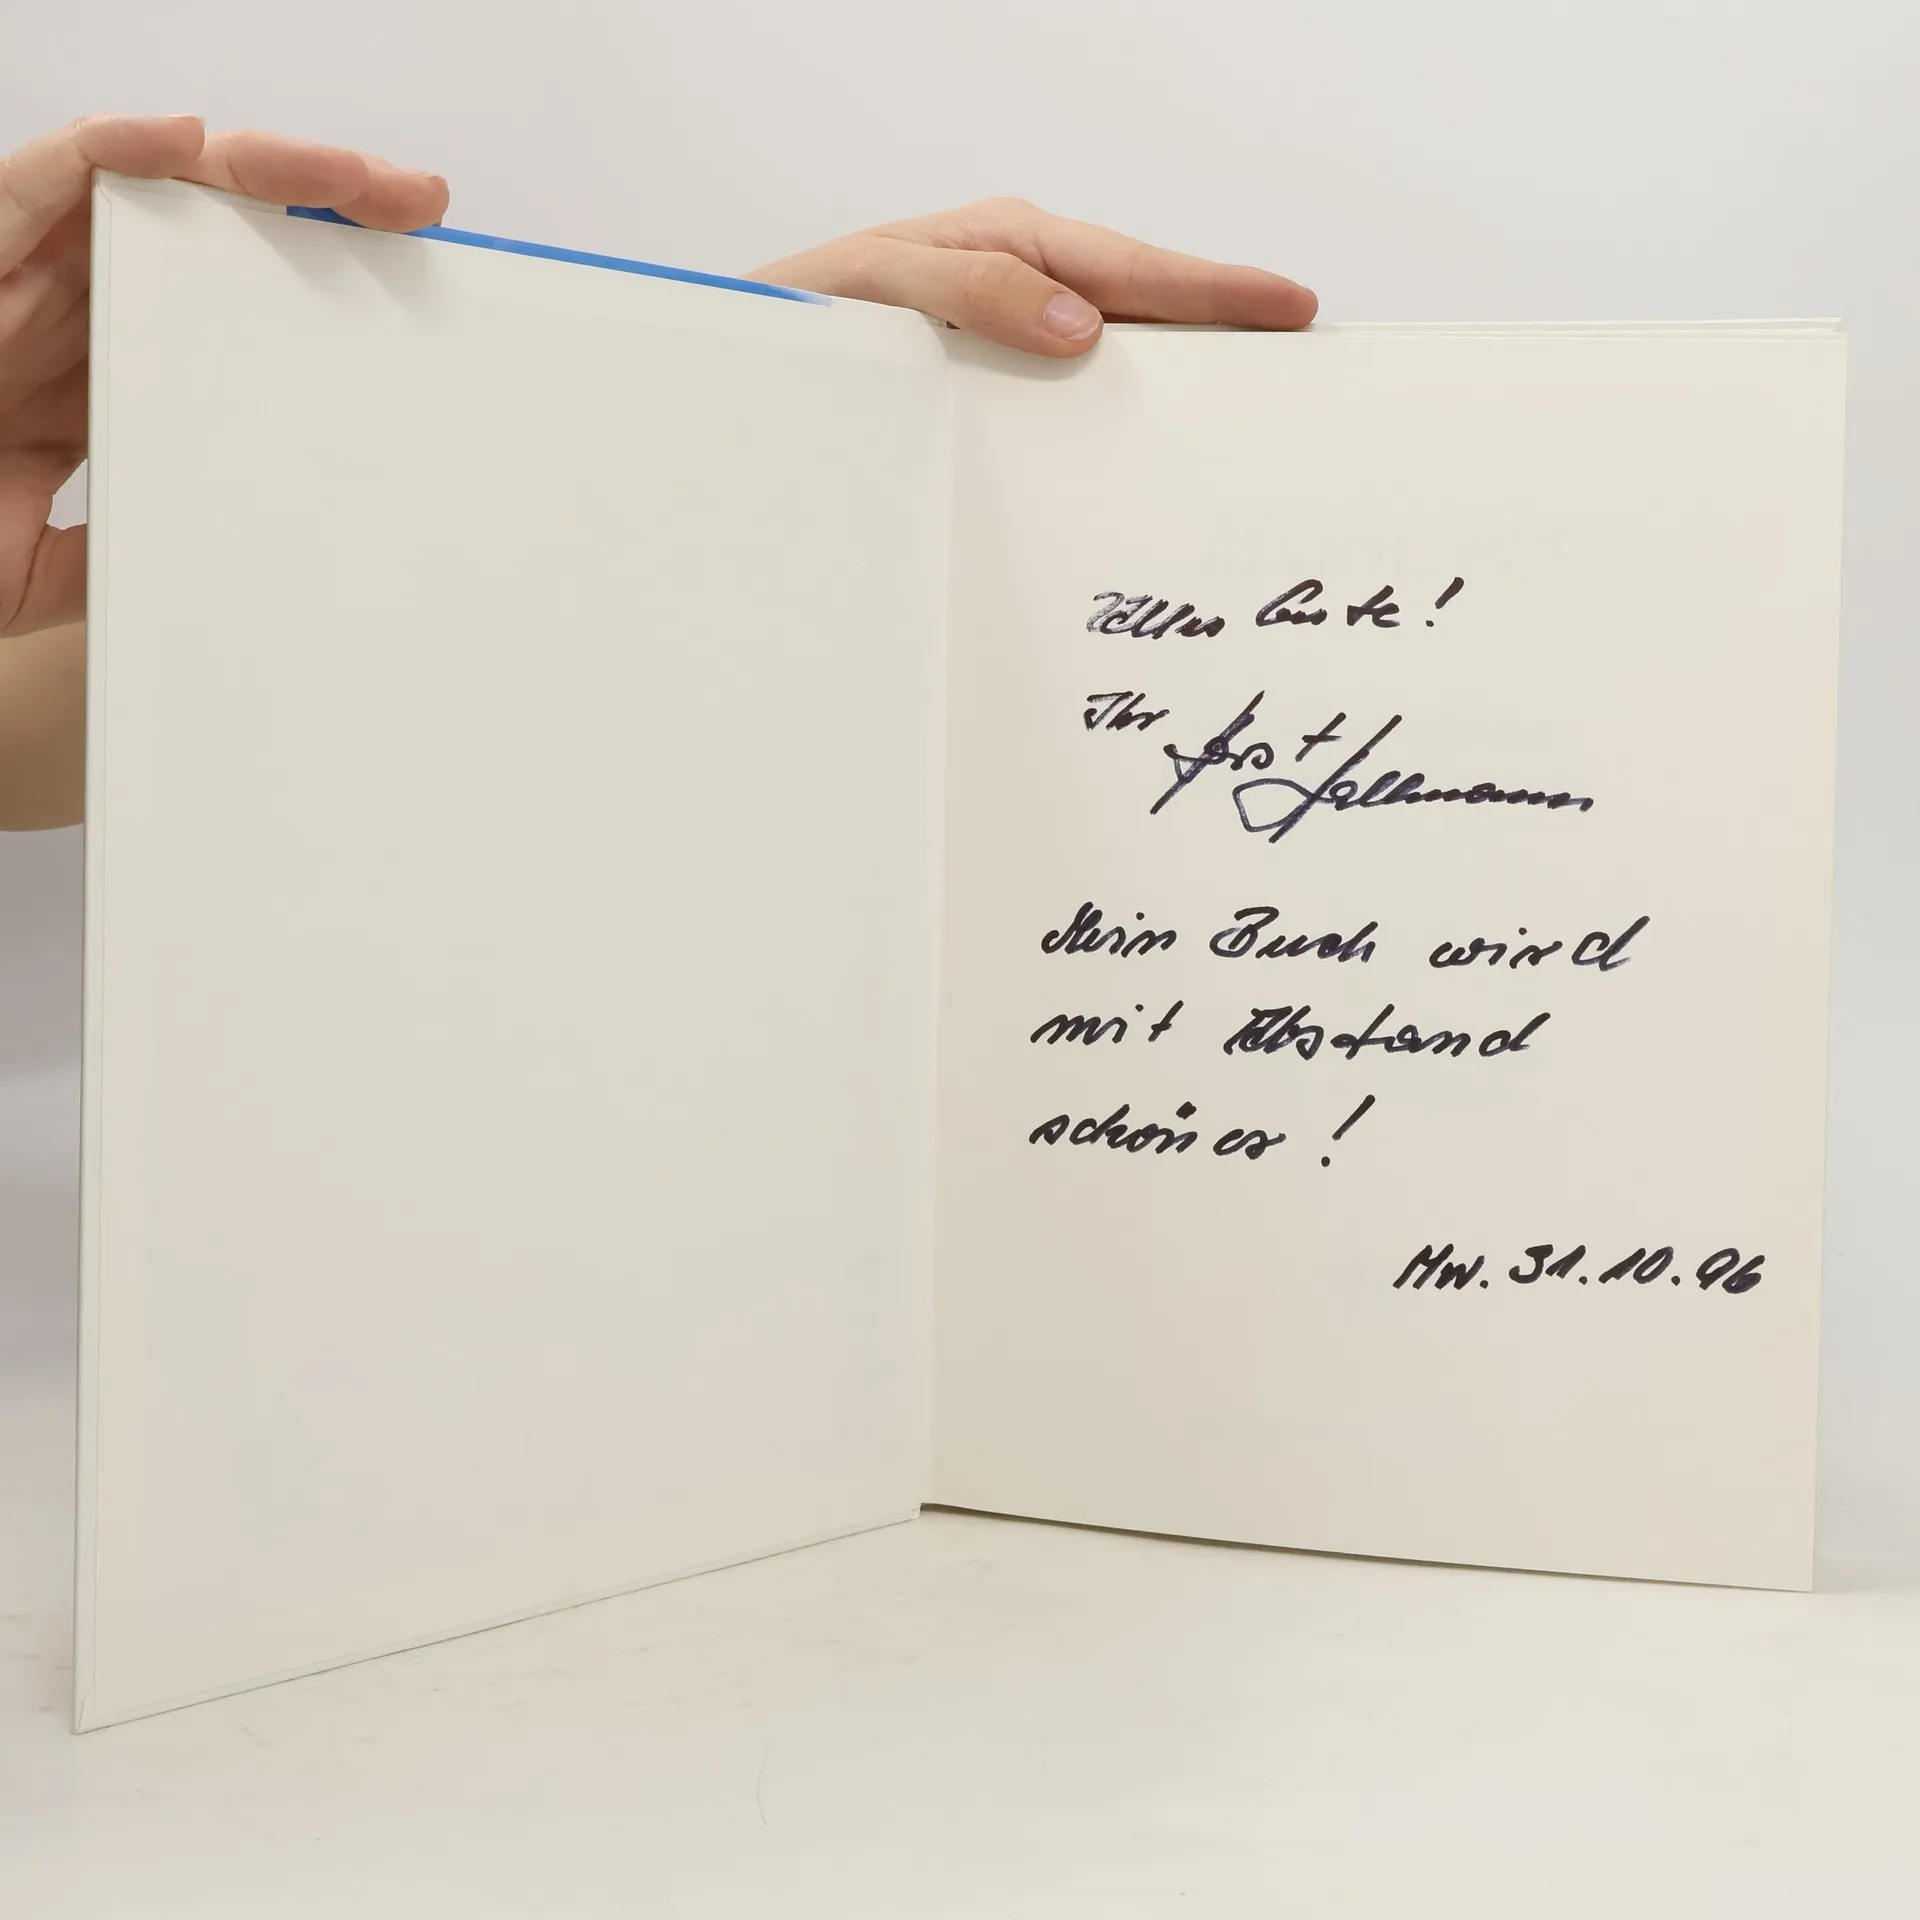 Alles Gute!
Ihr Horst Hellmann
Mein Buch wird
mit Abstand
schöner!
Hw. 31.10.96